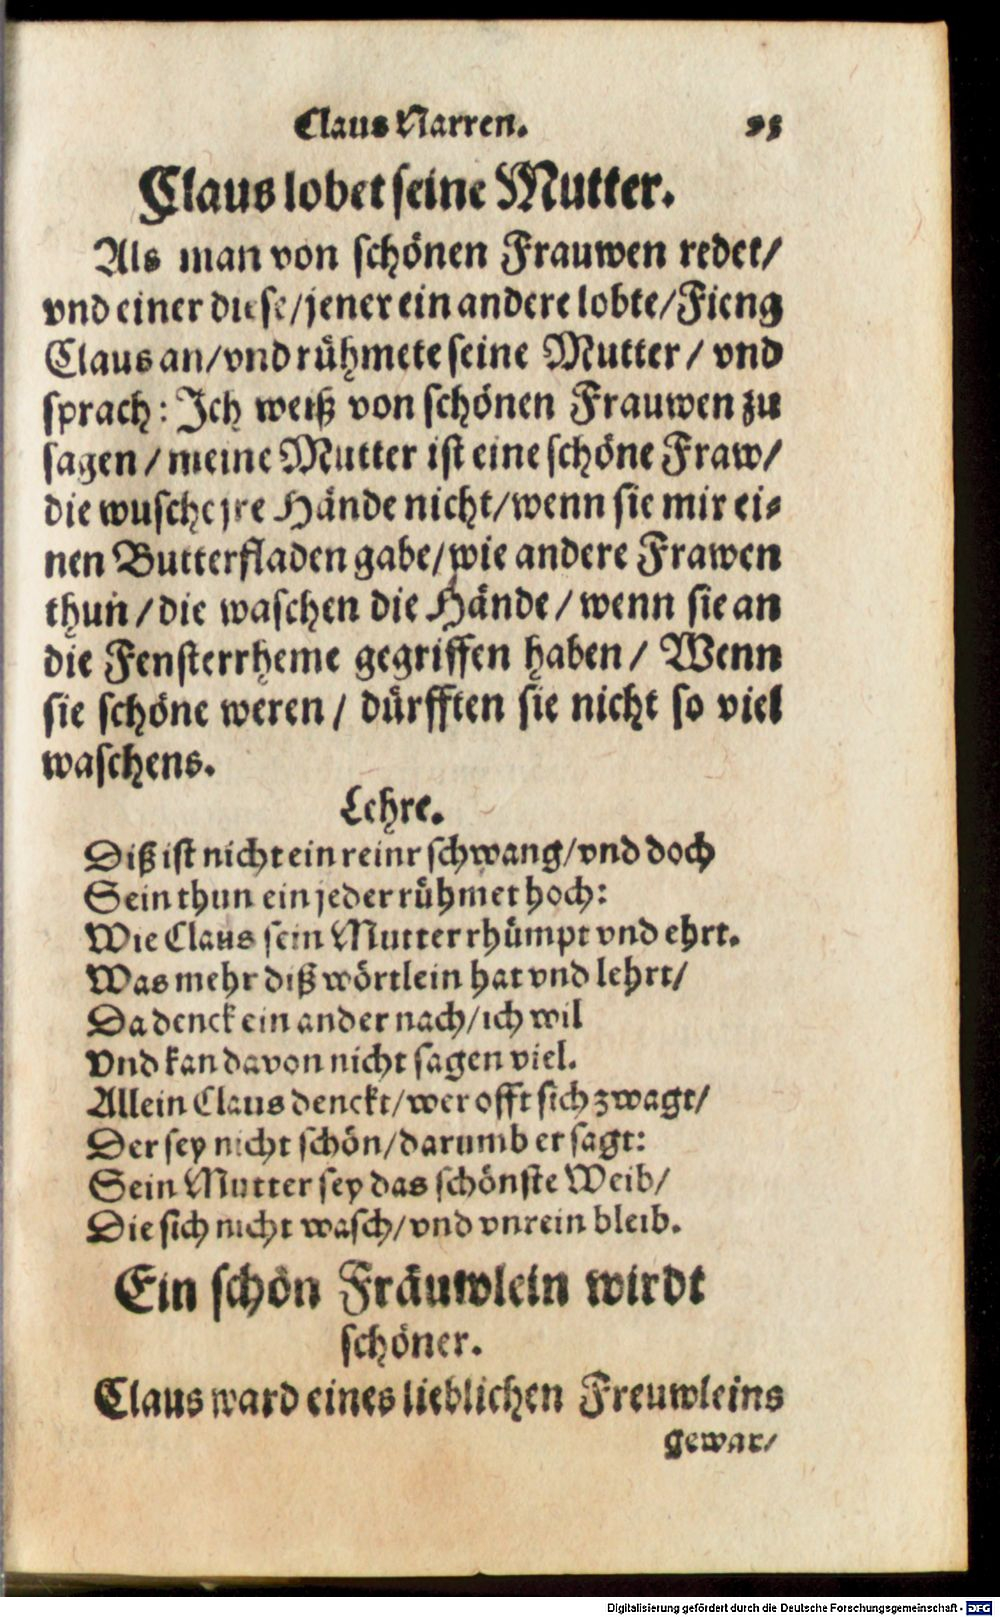 Claus Narren. 95
Claus lobet seine Mutter.
Als man von schönen Frauwen redet/
vnd einer diese/jener ein andere lobte/Fieng
Claus an/vnd rühmete seine Mutter/ vnd
sprach: Ich weiß von schönen Frauwen zu
sagen/meine Mutter ist eine schöne Fraw/
die wusche jre Hände nicht/wenn sie mir ei-
nen Butterfladen gabe/wie andere Frawen
thun/die waschen die Hände/wenn sie an
die Fensterrheme gegriffen haben/ Wenn
sie schöne weren/ dürfften sie nicht so viel
waschens.
Lehre.
Diß ist nicht ein reinr schwang/vnd doch
Sein thun ein jeder rühmet hoch:
Wie Claus sein Mutter rhümpt vnd ehrt.
Was mehr diß wörtlein hat vnd lehrt/
Da denck ein ander nach/ich wil
Vnd kan davon nicht sagen viel.
Allein Claus denckt/wer offt sich zwagt/
Der sey nicht schön/darumb er sagt:
Sein Mutter sey das schönste Weib/
Die sich nicht wasch/vnd vnrein bleib.
Ein schön Fräuwlein wirdt
schöner.
Claus ward eines lieblichen Freuwleins
gewar/
Digitalisierung gefördert durch die Deutsche Forschungsgemeinschaft - DFG